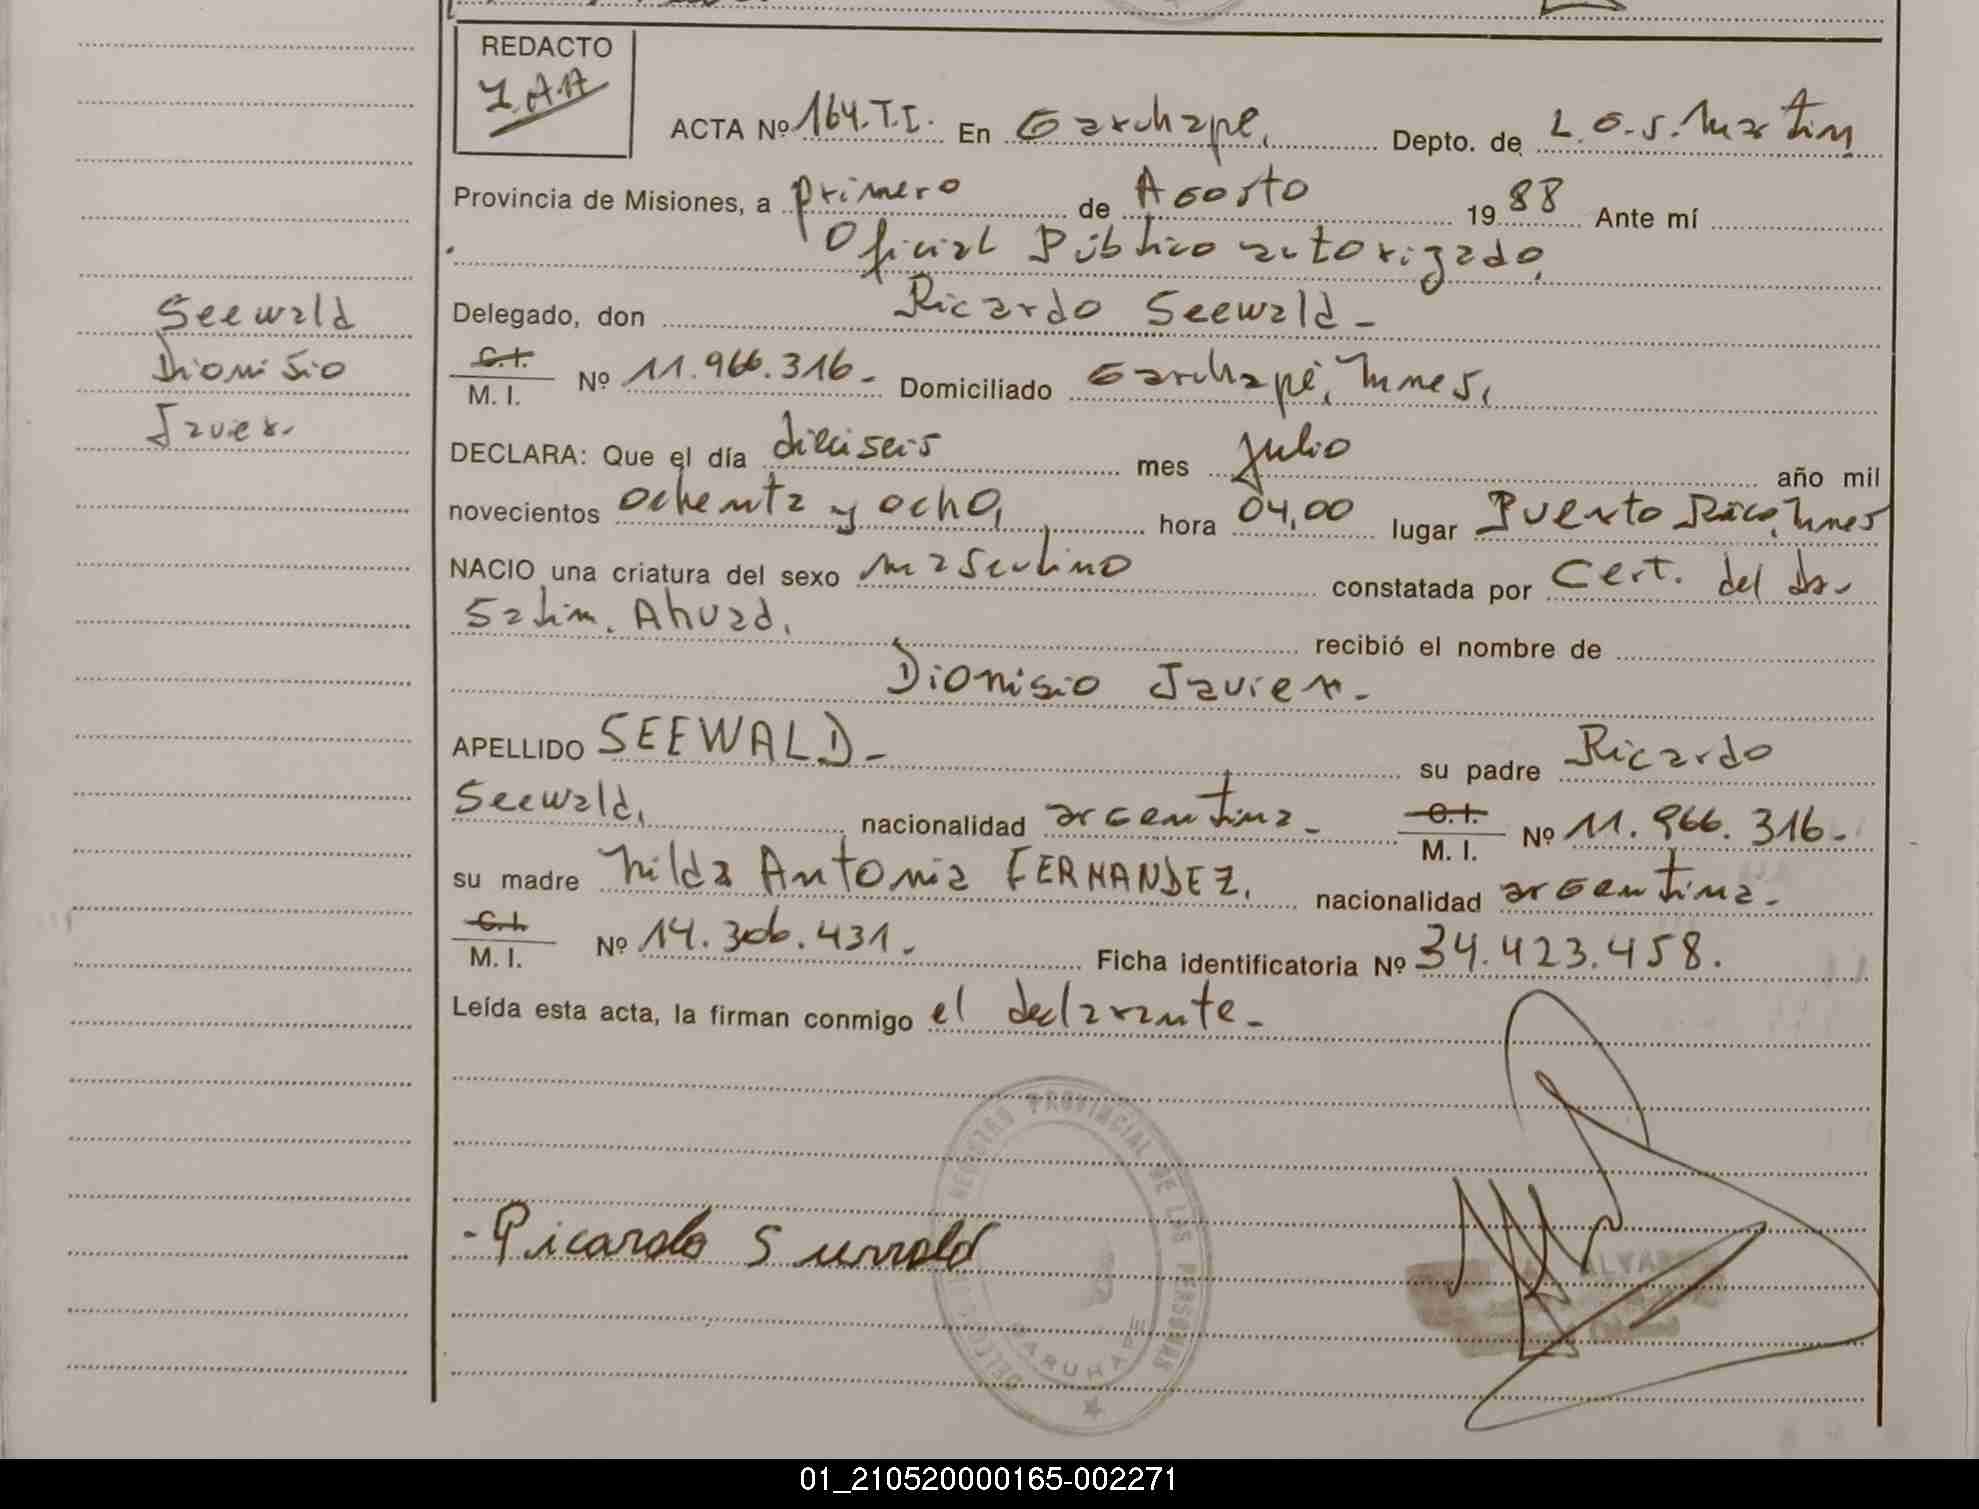 REDACTO
ACTA Nº 164.T.I. En Garuhape, Depto. de L.G.S. Martin
Provincia de Misiones, a primero de Agosto 1988 Ante mí
Oficial Público autorizado,
Delegado, don Ricardo Seewald -
C.I. M. I. Nº 11.966.316 - Domiciliado Garuhapé, Mnes,
DECLARA: Que el día dieciseis mes Julio año mil
novecientos ochenta y ocho, hora 04,00 lugar Puerto Rico, Mnes
NACIO una criatura del sexo masculino constatada por Cert. del Dr.
Salim. Ahuad. recibió el nombre de
Dionisio Javier -
APELLIDO SEEWALD - su padre Ricardo
Seewald, nacionalidad argentina - C.I. M. I. Nº 11.966.316 -
su madre Nilda Antonia FERNANDEZ, nacionalidad argentina -
C.I. M. I. Nº 14.306.431 - Ficha identificatoria Nº 34.423.458.
Leída esta acta, la firman conmigo el declarante -
Seewald
Dionisio
Javier
REGISTRO PROVINCIAL DE LAS PERSONAS
GARUHAPE
01_210520000165-002271